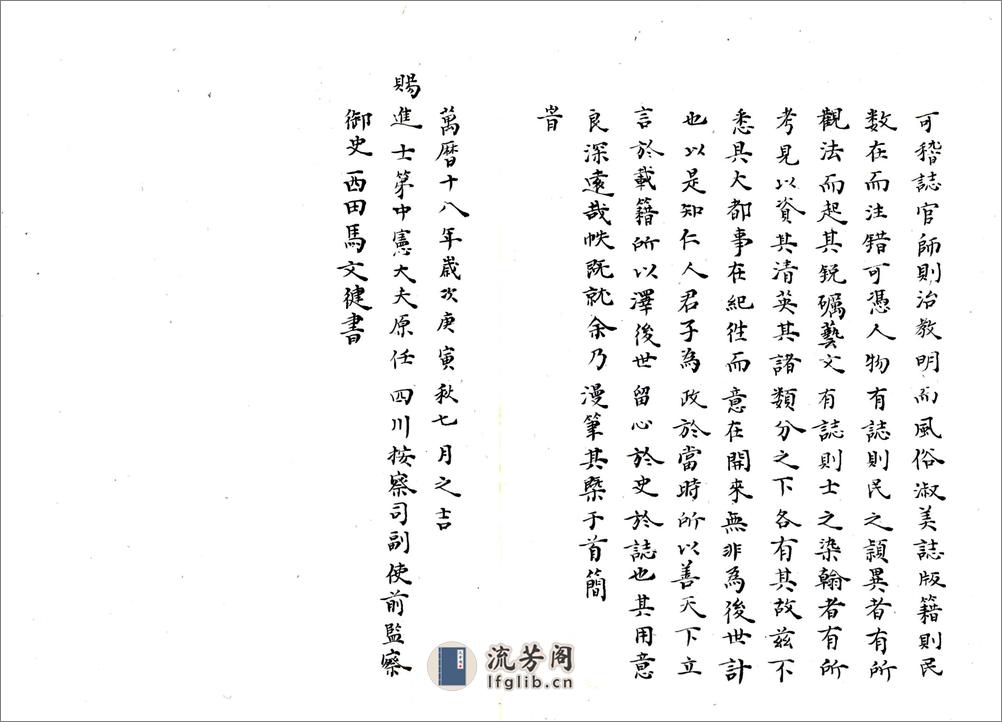 可稽誌官師則治教明而風俗淑美誌版籍則民
数在而注錯可憑人物有誌則民之頴異者有所
觀法而起其鋭礪藝文有誌則士之染翰者有所
考見以資其清英其諸類分之下各有其故兹不
悉具大都事在紀徃而意在開來無非為後世計
也以是知仁人君子為政於當時所以善天下立
言於載籍所以澤後世留心於史於誌也其用意
良深遠哉帙既就余乃漫筆其槩于首簡
旹
萬曆十八年歲次庚寅秋七月之吉
賜進士第中憲大夫原任四川按察司副使前監察
御史西田馬文健書
流芳阁
lfglib.cn